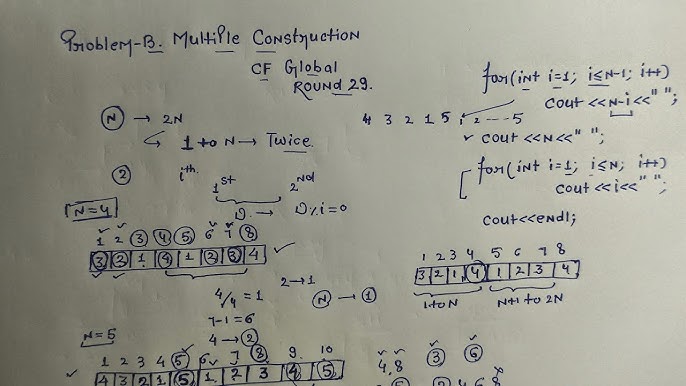 Problem-B. Multiple Construction
CF Global
ROUND 29.
N → 2N
1 to N → Twice.
② ith
1st 2nd
D. → D%i=0
N=4
1 2 3 4 5 6 7 8
3 2 1 4 1 2 3 4
4/4 = 1
7-1=6
4→2
2→1
N → 1
N=5
1 2 3 4 5 6 7 8 9. 10
4 3 2 1 5 1 2 3 4 5
4 3 2 1 5 1 2 ---- 5
for(int i=1; i≤N-1; i++)
cout <<N-i<<" ";
cout <<N<<" ";
for(int i=1; i≤N; i++)
cout <<i<<" ";
cout<<endl;
1 2 3 4 5 6 7 8
3 2 1 4 1 2 3 4
1 to N N+1 to 2N
4,8 3 6
4 6 8